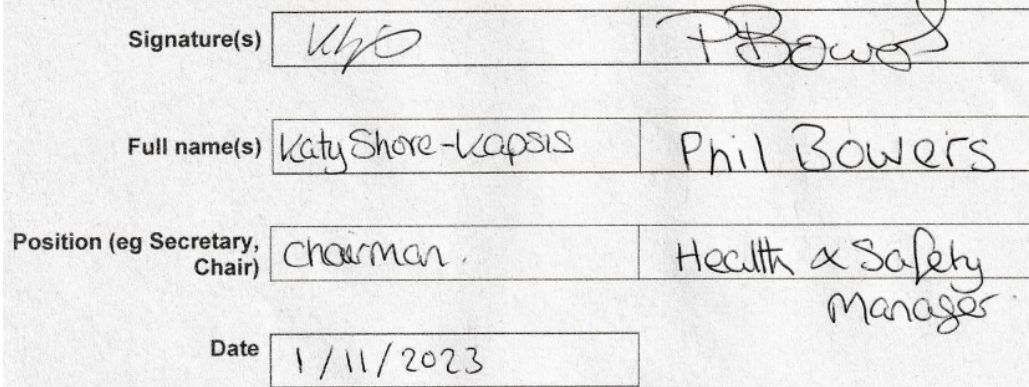 Signature(s) PBowers
Full name(s) Katy Shore-Kapsis Phil Bowers
Position (eg Secretary, Chairman. Health & Safety
Chair) Manager
Date 1/11/2023